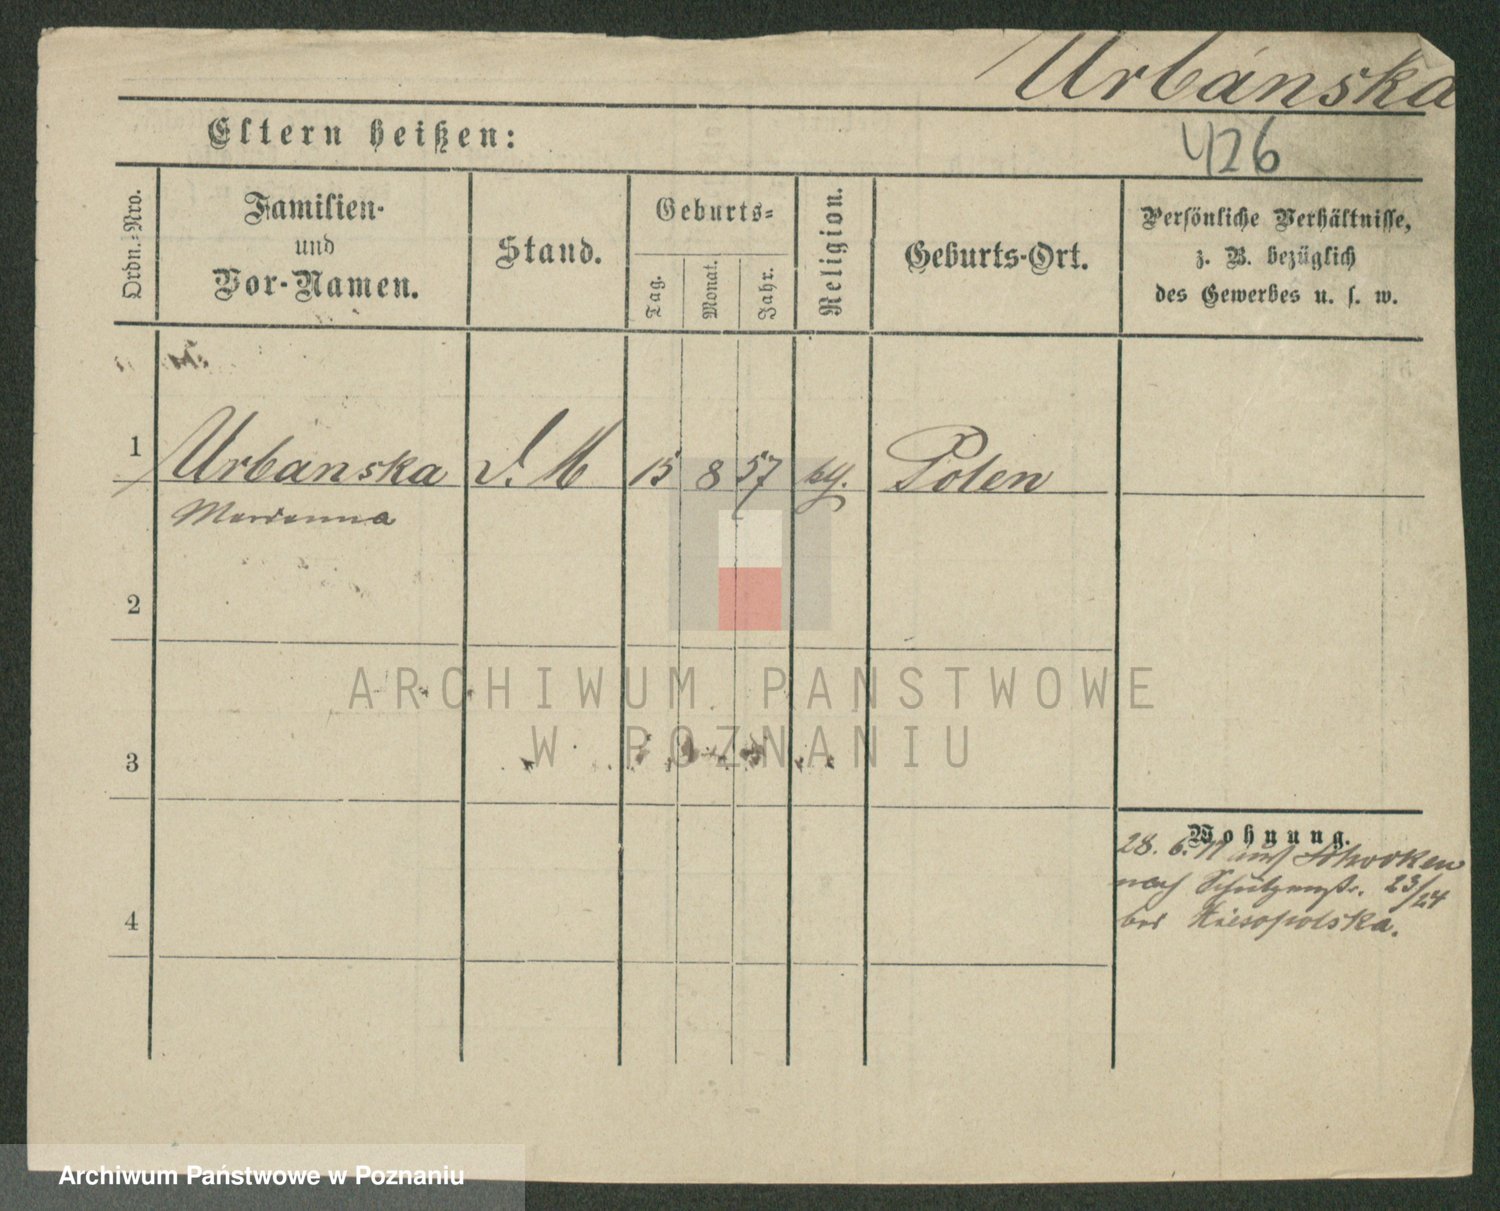 Urbánska
Eltern heißen:
426
Ordn.-Nro.
Familien-
und
Vor-Namen.
Stand.
Geburts-
Tag.
Monat.
Jahr.
Religion.
Geburts-Ort.
Persönliche Verhältnisse,
z. B. bezüglich
des Gewerbes u. s. w.
1 Urbanska D. M 15 8 57 Polen
Marianna
2
ARCHIWUM PAŃSTWOWE
W POZNANIU
3
Wohnung.
28. 6. aus
nach Schützenstr. 23/24
bei
4
Archiwum Państwowe w Poznaniu